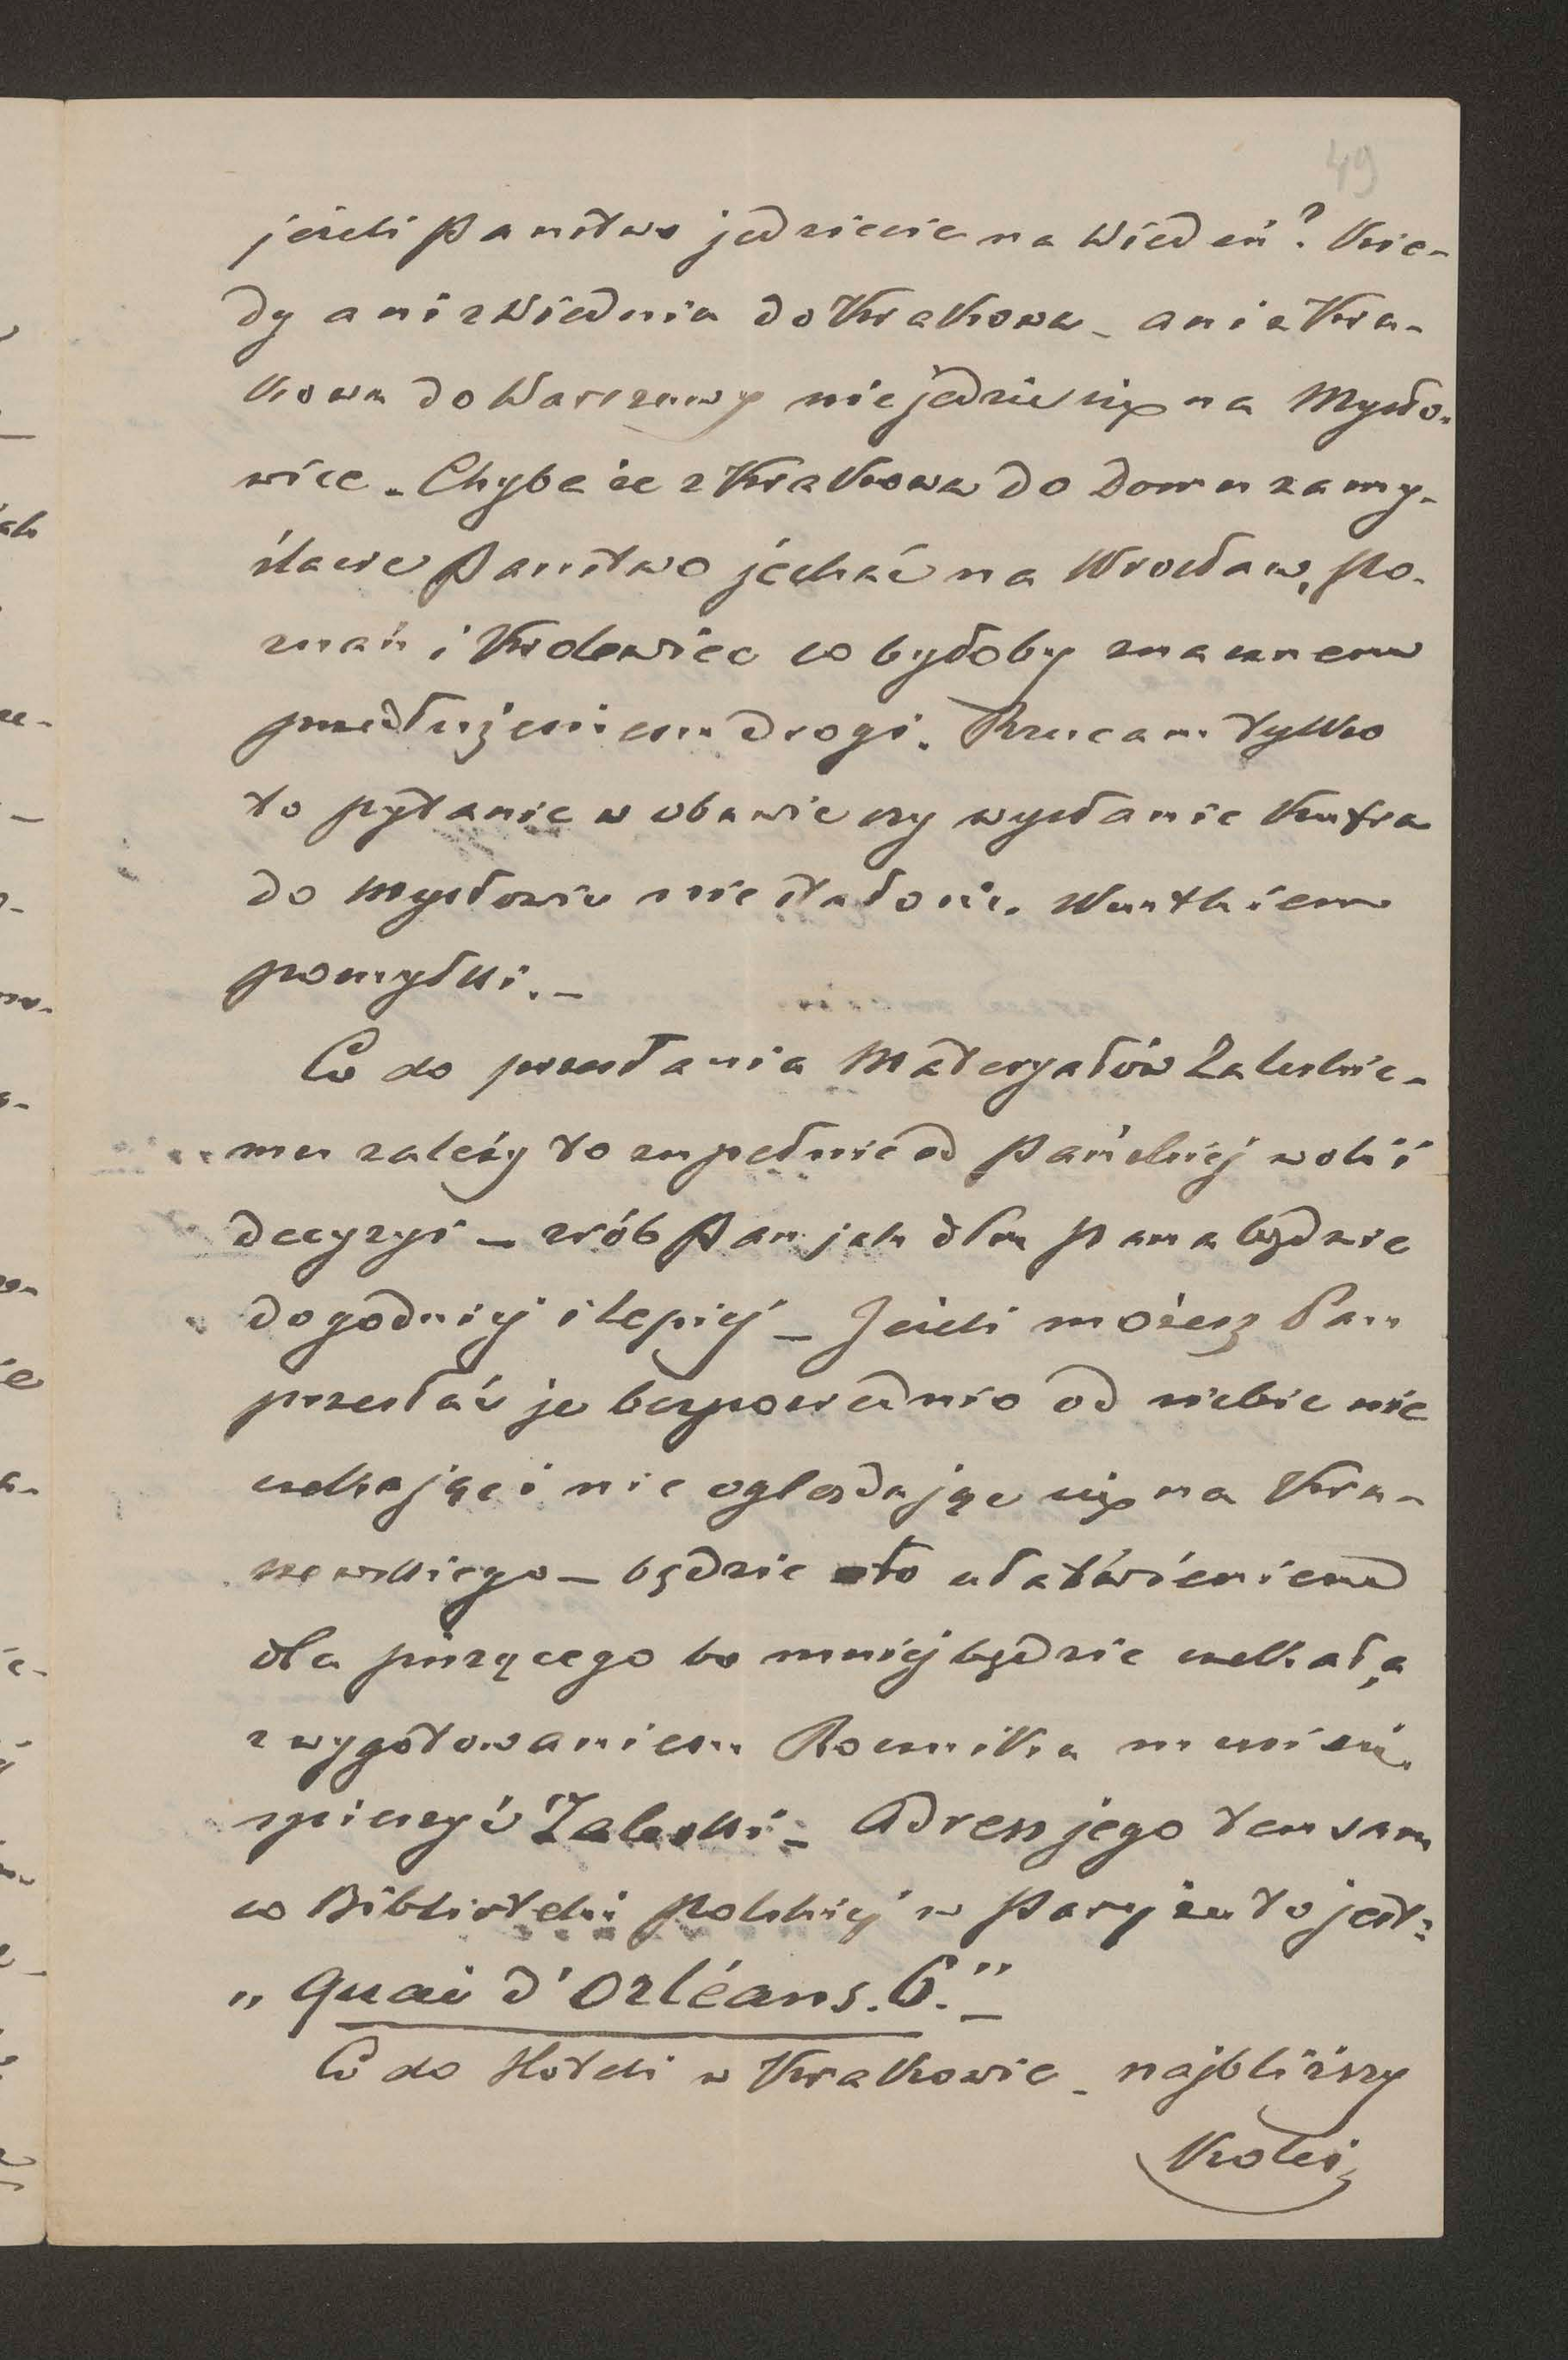 49
jeżeli Państwo jedziecie na Wiedeń? Kie-
dy ani z Wiednia do Krakowa – ani z Kra-
kowa do Warszawy nie jedzie się na Mysło-
wice. Chyba że z Krakowa do domu zamy-
ślacie Państwo jechać na Wrocław, Po-
znań i Królewiec co byłoby znacznem
przedłużeniem drogi. Rzucam tylko
to pytanie w obawie czy wysłanie kufra
do Mysłowic nie stało się skutkiem
pomyłki. –
Co do przesłania Materyałów Zaleskie-
mu zależy to zupełnie od Pańskiéj woli i
decyzyi – zrób Pan jak dla Pana będzie
dogodniéj i lepiéj – Jeżeli możesz Pan
przesłać je bezpośrednio od siebie nie
czekając i nie oglądając się na Kra-
szewskiego – będzie to ułatwieniem
dla piszącego bo mniéj będzie czekał, a
z wygotowaniem Rocznika musi się
spieszyć Zaleski – Adress jego ten sam
co Biblioteki Polskiéj w Paryżu to jest:
„Quai d'Orléans. 6." –
Co do Hoteli w Krakowie – najbliższy
Kolei,